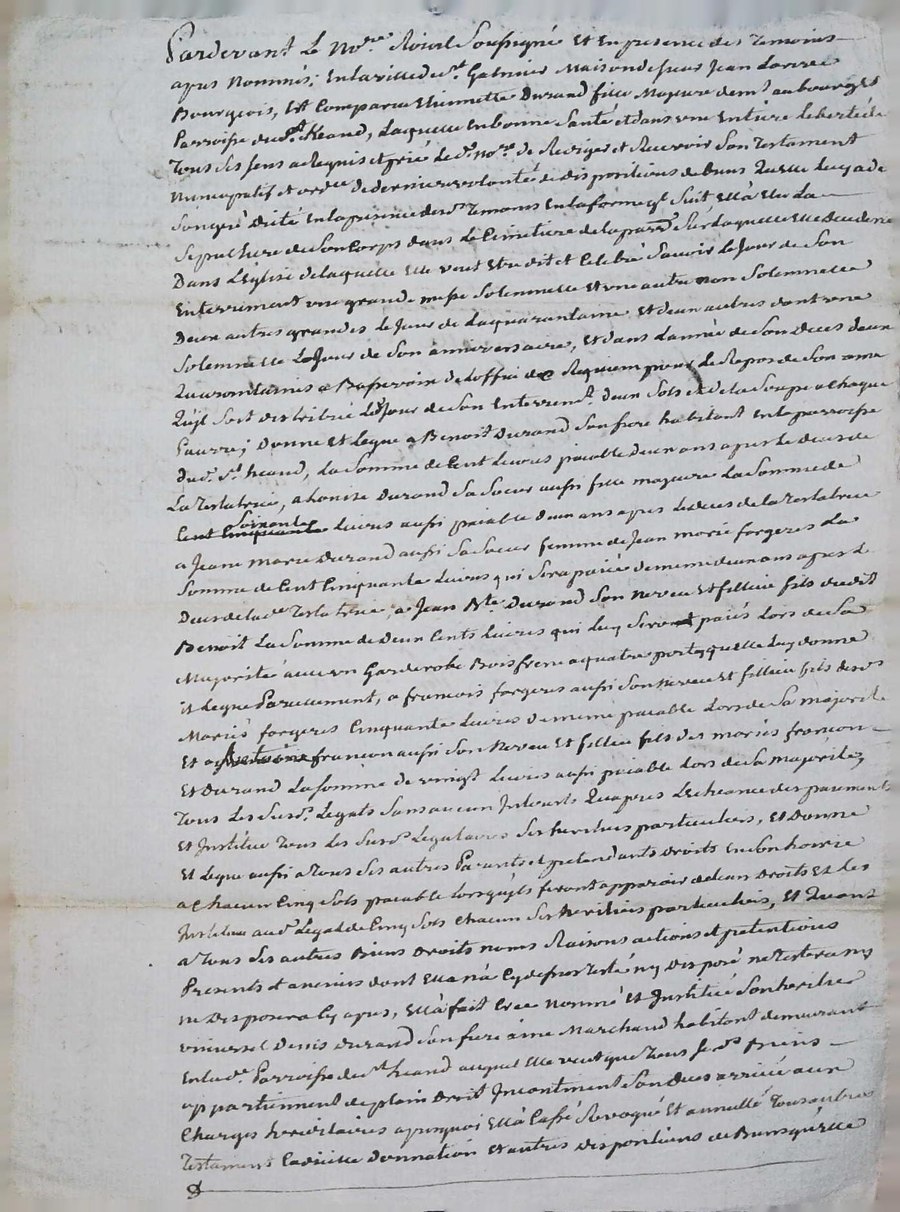 Pardevant Le No.re Roial Soussigné Et En presence des Temoins
apres Nommés; En la ville de s.t Galmier Maison de sieur Jean
Bourgeois, Est Comparue Etiennette Durand fille Majeure dem.t au bourg et
Parroisse de s.t Heand, Laquelle En bonne Santé et dans une Entiere Liberté de
Tous Ses Sens a Requis et prié Le d.t No.re de Rediger et Recevoir Son Testament
Nuncupatif et ord.ce de derniere volonté et dispositions de biens Quelle Luy a de
Son gré Dicté En la presence des d.s Temoins En la forme q.l Suit Ella Elu La
Sepulture de Son Corps dans Le Cimetiere de la parr.e Sur Laquelle Elle Decedera
Dans L'Eglise de laquelle Elle veut Etre dit et Celebré Savoir Le Jour de Son
Enterrement une grande messe Solemnelle Et une autre non Solemnelle
Deux autres grandes Le Jour de La quarantaine Et deux autres dont une
Solemnelle Le Jour de Son anniversaire, Et dans L'année de Son Deces deux
a Basse voix de Loffice de Requiem pour Le Repos de Son ame
Qu'il Soit distribué Le Jour de Son Enterrem.t deux Sols et de la Soupe a Chaque
Pauvre; Donne Et Legue a Benoit Durand Son frere habitant En la parroisse
Dud. S.t heand, La Somme de Cent Livres païable deux ans apres Le Deces de
La Testatrice, a Louise Durand Sa Soeur aussi fille majeure La Somme de
Cent Cinquante Soixante Livres aussi païable deux ans apres Le deces de la Testatrice
a Jeanne Marie Durand aussi Sa Soeur femme de Jean marie forgeres La
Somme de Cent Cinquante Livres qui Sera païée de meme deux ans apres Le
Deces de lad.e Testatrice, a Jean B.te Durand Son Neveu Et filleul fils dudit
Benoit La Somme de Deux Cents Livres qui Luy Seront païés Lors de Sa
Majorité avec un Garderobe Bois frene a quatre portes quelle Luy donne
et Legue Pareillement, a francois forgeres aussi Son Neveu Et filleul fils desd.s
Mariés forgeres Cinquante Livres de meme païable Lors de Sa majorité
Et a Antoine francon aussi Son Neveu Et filleul fils des mariés francon
Et Durand La Somme de vingt Livres aussi païable Lors de Sa majorité,
Tous Les Susd.s Legats Sans aucun Interets Qu'apres L'Echeance des paiements
Et Institue Tous Les Susd.s Legataires Ses heritiers particuliers, Et Donne
Et Legue aussi a Tous Ses autres Parants et pretendants Droits En Son hoirie
a Chacun Cinq Sols païable Lorsqu'ils feront apparoir de leur Droits Et les
Institue aud. Legat de Cinq Sols Chacun Ses heritiers particuliers, Et Quant
a Tous Ses autres Biens Droits noms Raisons actions et pretentions
Presents et avenirs dont Ella n'a Cy dessus Testé ny Disposé ne Testera ny
ne Disposera Cy apres, Ella fait Créé Nommé Et Institué Son heritier
universel Denis Durand Son frere ainé Marchand habitant demeurant
En lad.e Parroisse de s.t heand auquel Elle veut que Tous Sesd.s Biens
appartiennent de plein Droit Incontinent Son Deces arrivé aux
Charges hereditaires apresquoi Ella Cassé Revoqué Et annullé Tous autres
Testament Codicille Donnation Et autres Dispositions de Biens quelle